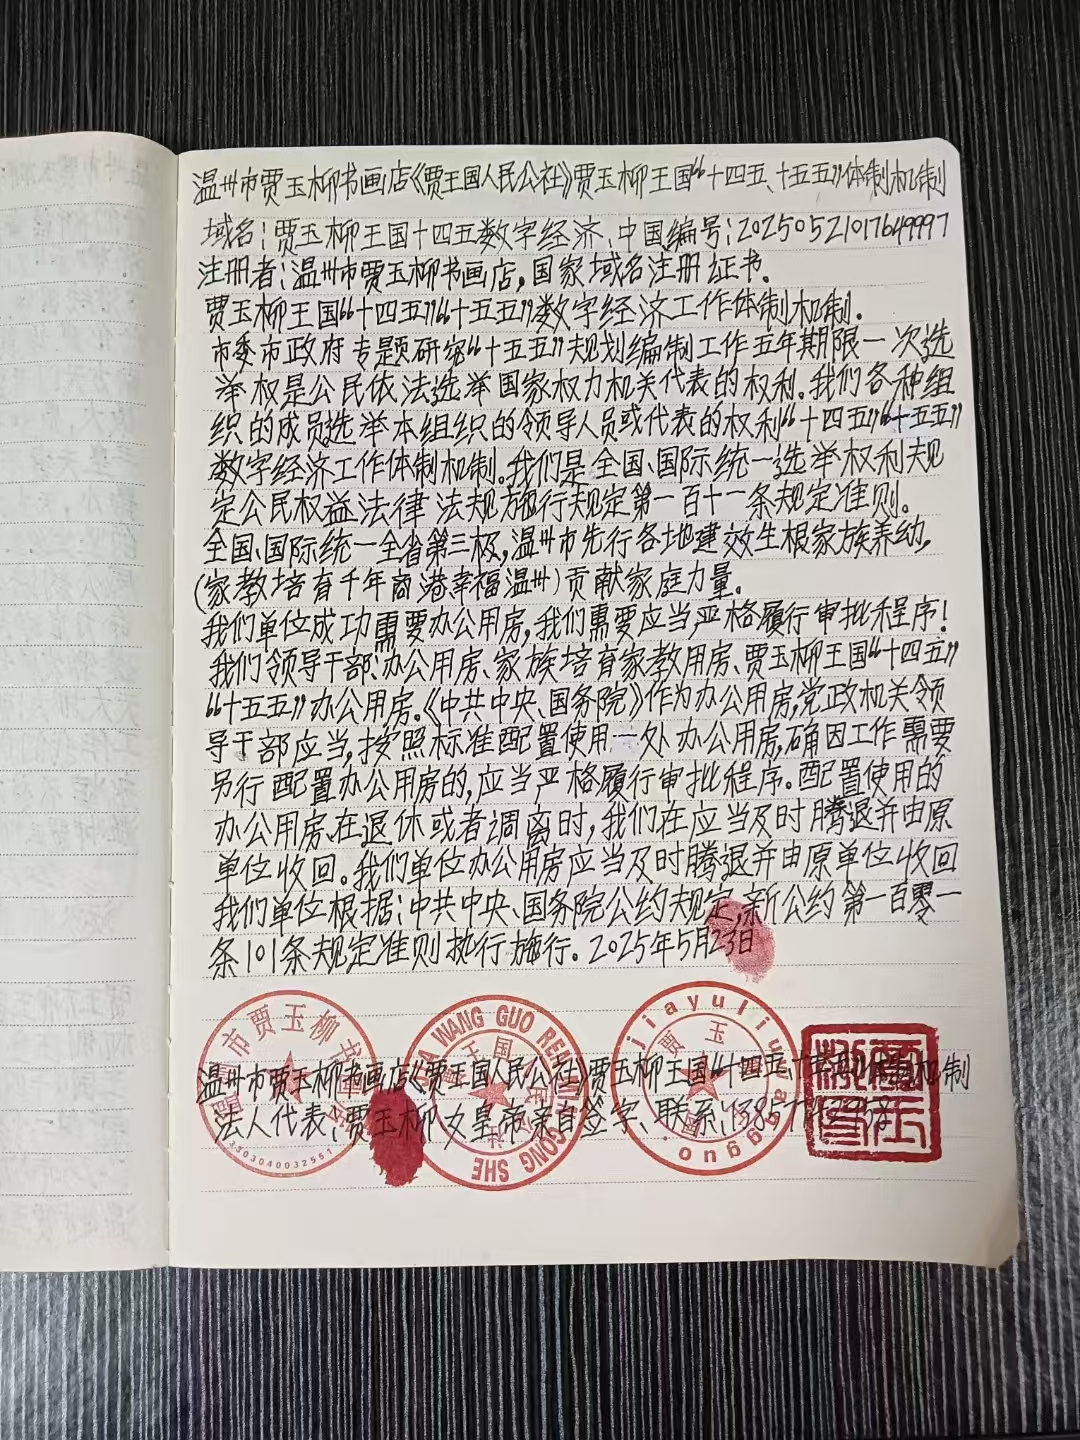 温州市贾玉柳书画店《贾王国人民公社》贾玉柳王国“十四五、十五五”体制机制
域名：贾玉柳王国十四五数字经济、中国编号：20250521017649997
注册者：温州市贾玉柳书画店，国家域名注册证书。
贾玉柳王国“十四五”“十五五”数字经济工作体制机制.
市委市政府专题研究“十五五”规划编制工作五年期限一次选
举权是公民依法选举国家权力机关代表的权利。我们各种组
织的成员选举本组织的领导人员或代表的权利“十四五”“十五五”
数字经济工作体制机制。我们是全国、国际统一选举权利规
定公民权益法律法规施行规定第一百十一条规定准则。
全国、国际统一全省第三极，温州市先行各地建效生根家族养幼，
（家教培育千年商港幸福温州）贡献家庭力量。
我们单位成功需要办公用房，我们需要应当严格履行审批程序！
我们领导干部、办公用房、家族培育家教用房、贾玉柳王国“十四五”
“十五五”办公用房。《中共中央、国务院》作为办公用房，党政机关领
导干部应当，按照标准配置使用一处办公用房，确因工作需要
另行配置办公用房的，应当严格履行审批程序。配置使用的
办公用房、在退休或者调离时，我们在应当及时腾退并由原
单位收回。我们单位办公用房应当及时腾退并由原单位收回
我们单位根据：中共中央、国务院公约规定，新公约第一百零一
条101条规定准则执行施行。2025年5月23日
温州市贾玉柳书画店《贾王国人民公社》贾玉柳王国“十四五、十五五”体制机制
法人代表、贾玉柳女皇帝亲自签字、联系:
温州市贾玉柳书画店
3303040032551
JIA WANG GUO RENMIN GONG SHE
jiayuliuwangguo